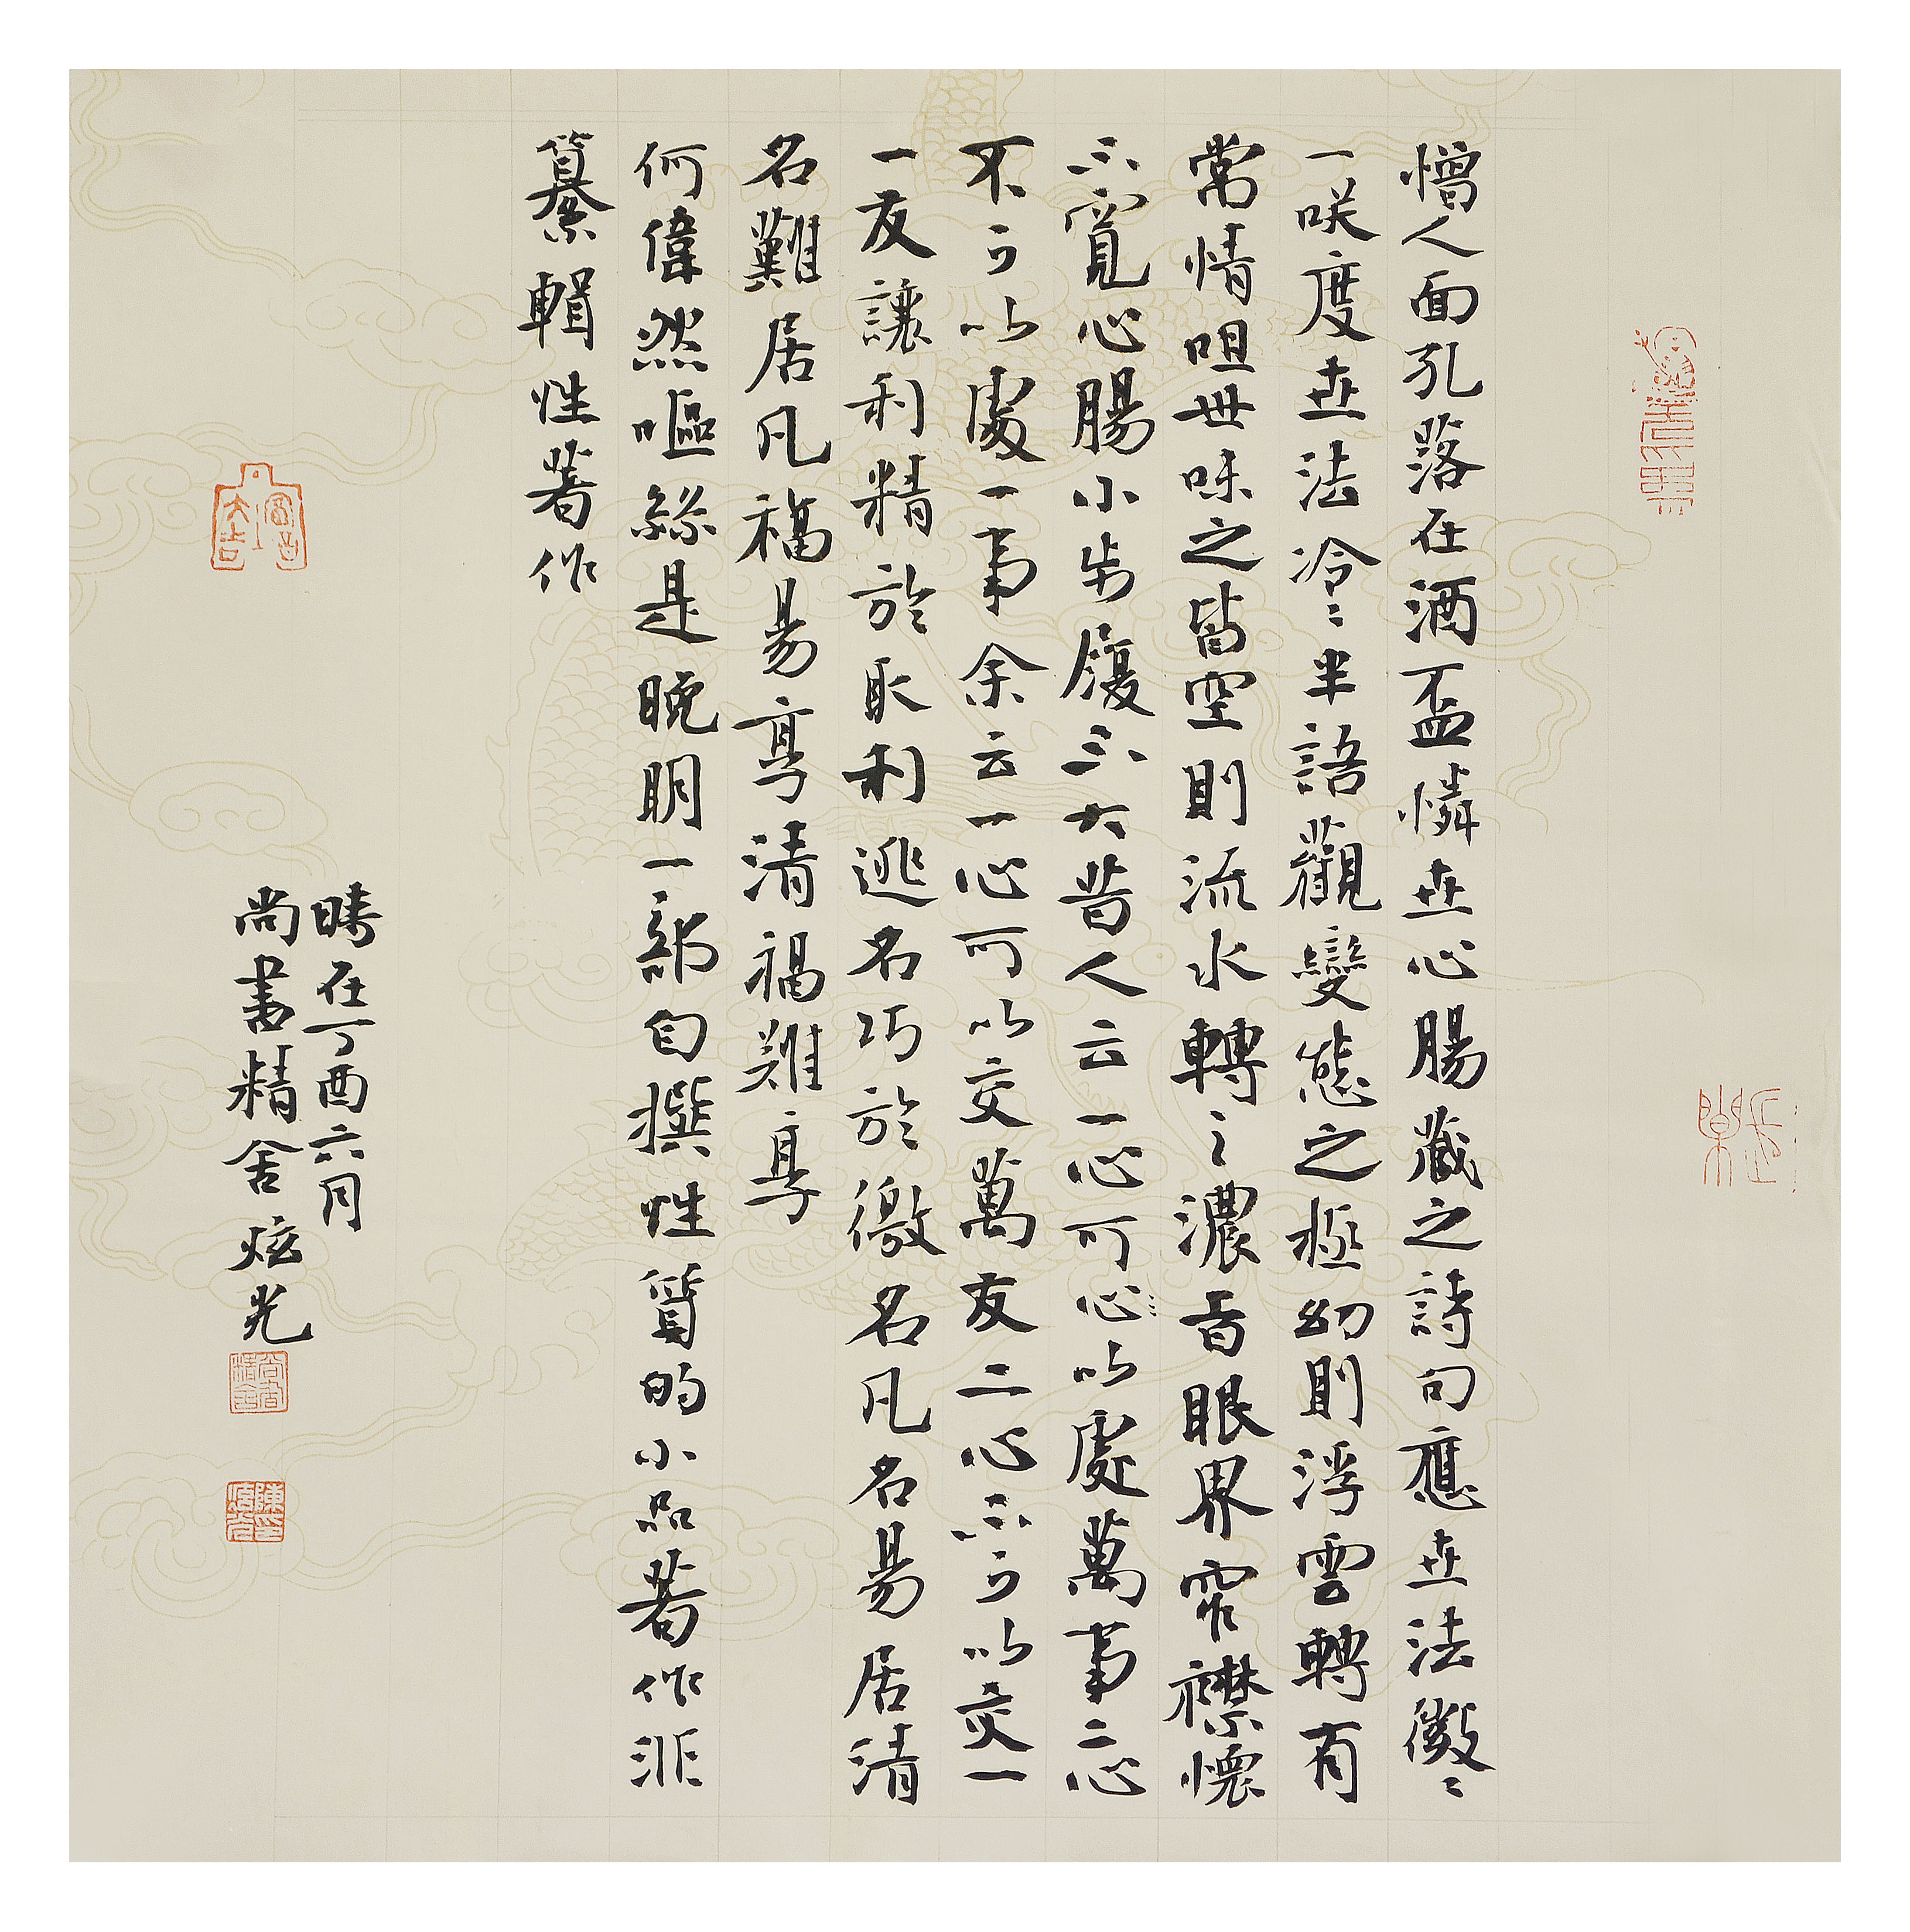 憎人面孔落在酒盃憐世心腸藏之詩句應世法微〻
一咲度世法冷〻半語觀變態之極幼則浮雲轉有
常情咀世味之皆空則流水轉〻濃旨眼界窄襟懷
不寬心腸小步履不大昔人云一心可心〻以處萬事二心
不可以處一事余云一心可以交萬友二心不可以交一
一友讓利精於取利逃名巧於徼名凡名易居清
名難居凡福易享清福難享
何偉然嘔絲是晚明一部自撰性質的小品著作非
纂輯性著作
時在丁酉六月
尚書精舍炫光
尚書精舍